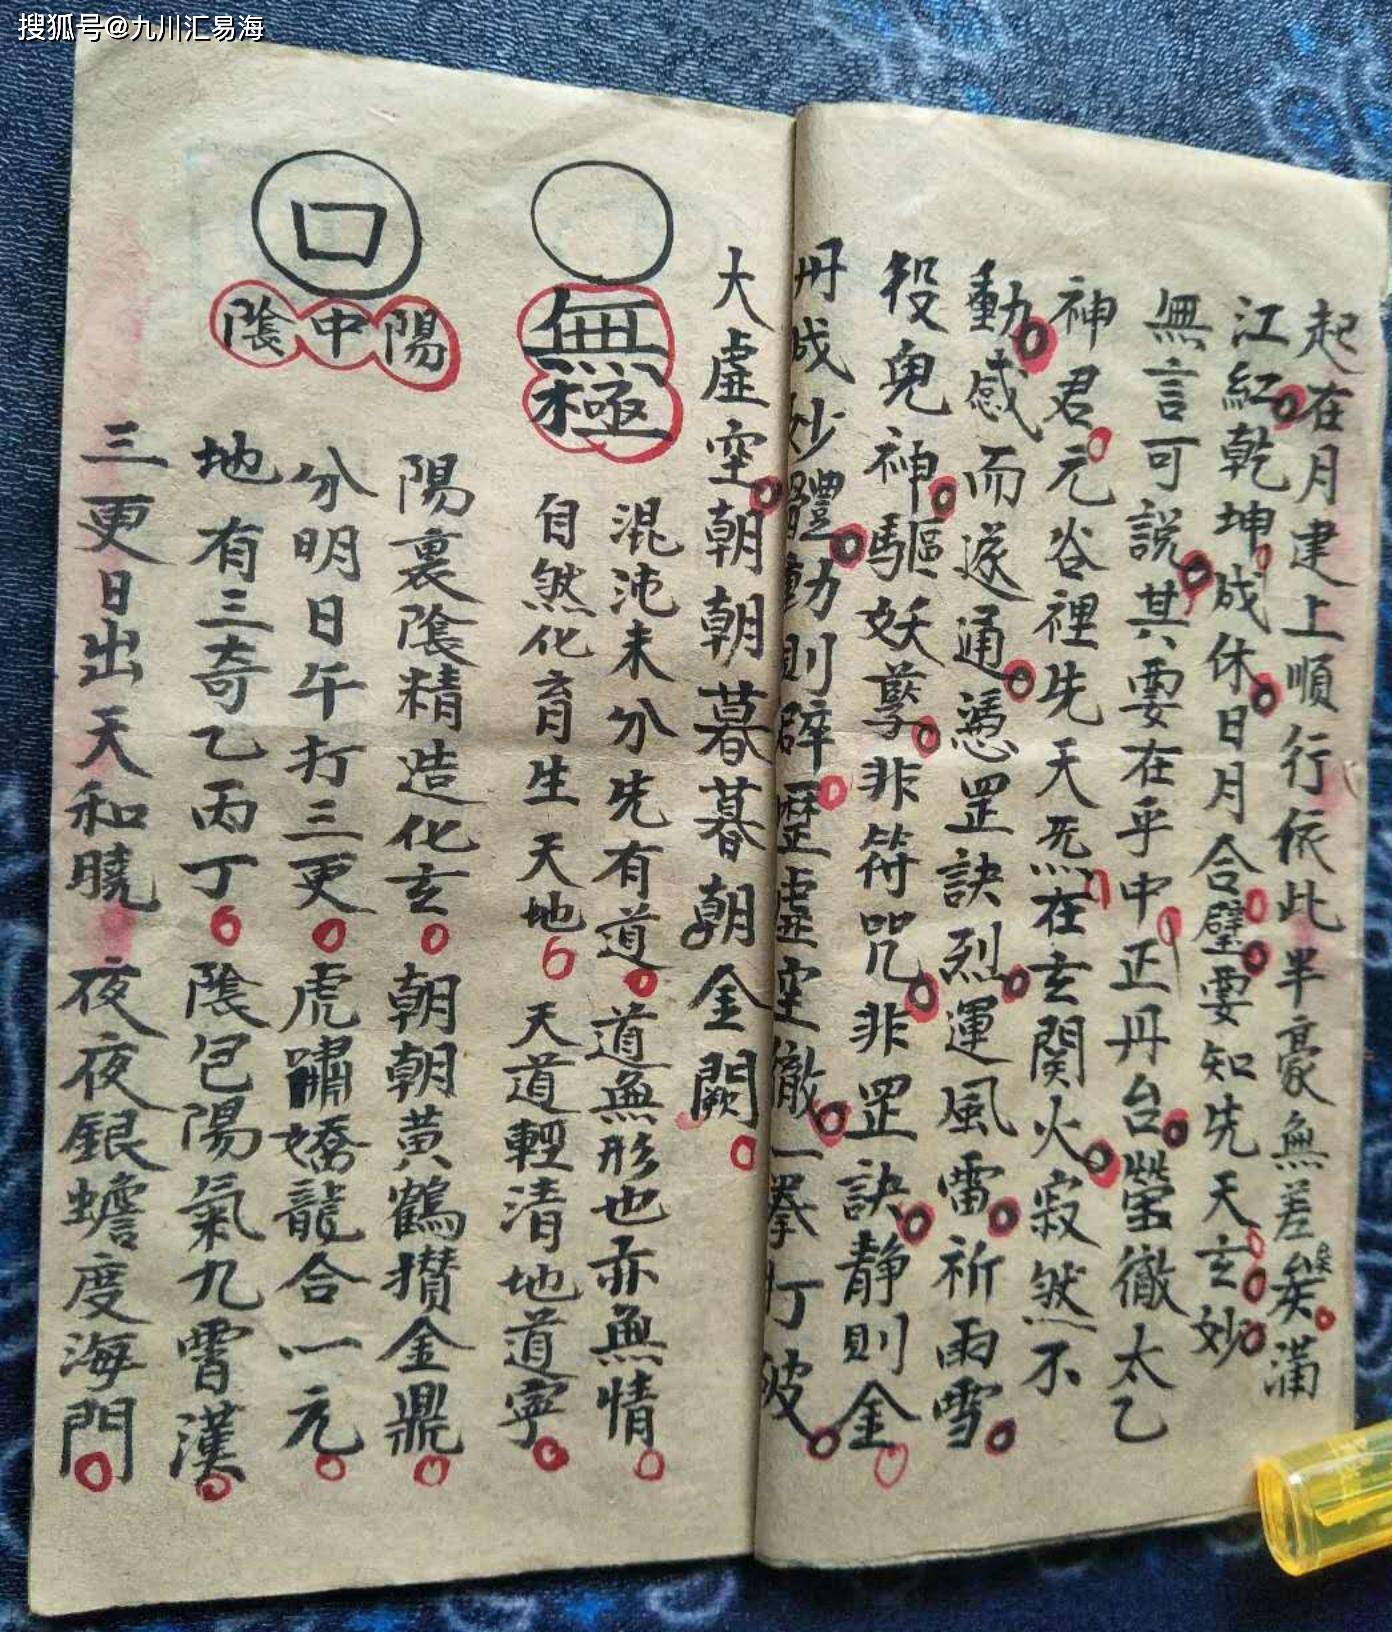 搜狐号@九川汇易海
起在月建上順行依此半豪無差矣滿
江紅乾坤成休日月合璧要知先天玄妙
無言可説其要在乎中正丹台瑩徹太乙
神君元谷裡先天炁在玄関火寂然不
動感而遂通憑罡訣烈運風雷祈雨雪
役鬼神驅妖孽非符咒非罡訣静則金
丹成妙體動則辟歷虛空徹一拳打破
大虛空朝朝暮暮朝金闕
無極
混沌未分先有道道無形也亦無情
自然化育生天地天道輕清地道寧
口
陰中陽
陽裏陰精造化玄朝朝黃鶴攢金鼎
分明日午打三更虎嘯嬌龍合一元
地有三奇乙丙丁陰包陽氣九霄漢
三更日出天和曉夜夜銀蟾度海門